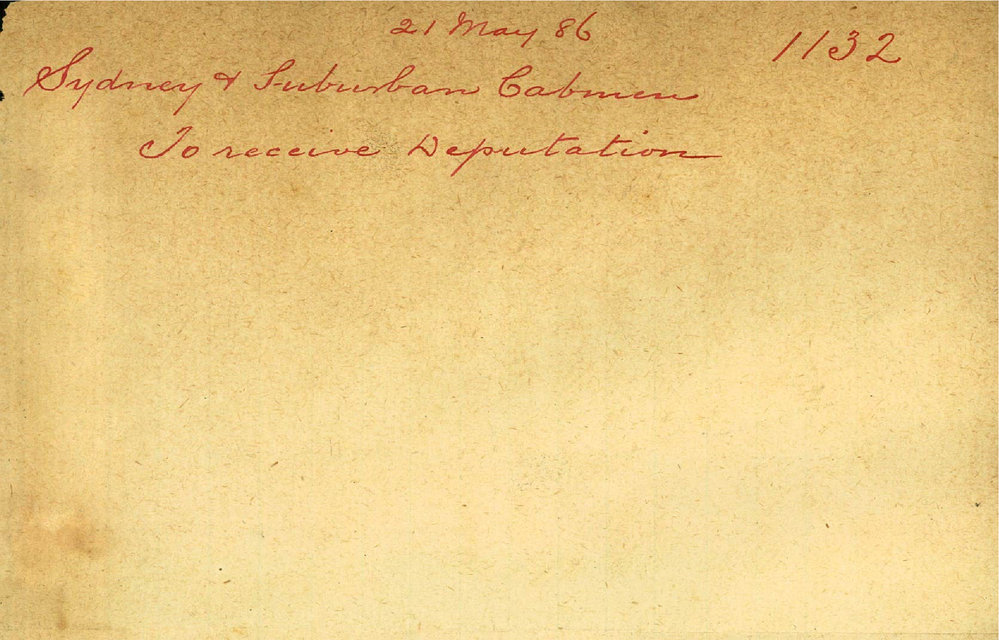 21 May 86
1132
Sydney & Suburban Cabmen
To receive Deputation